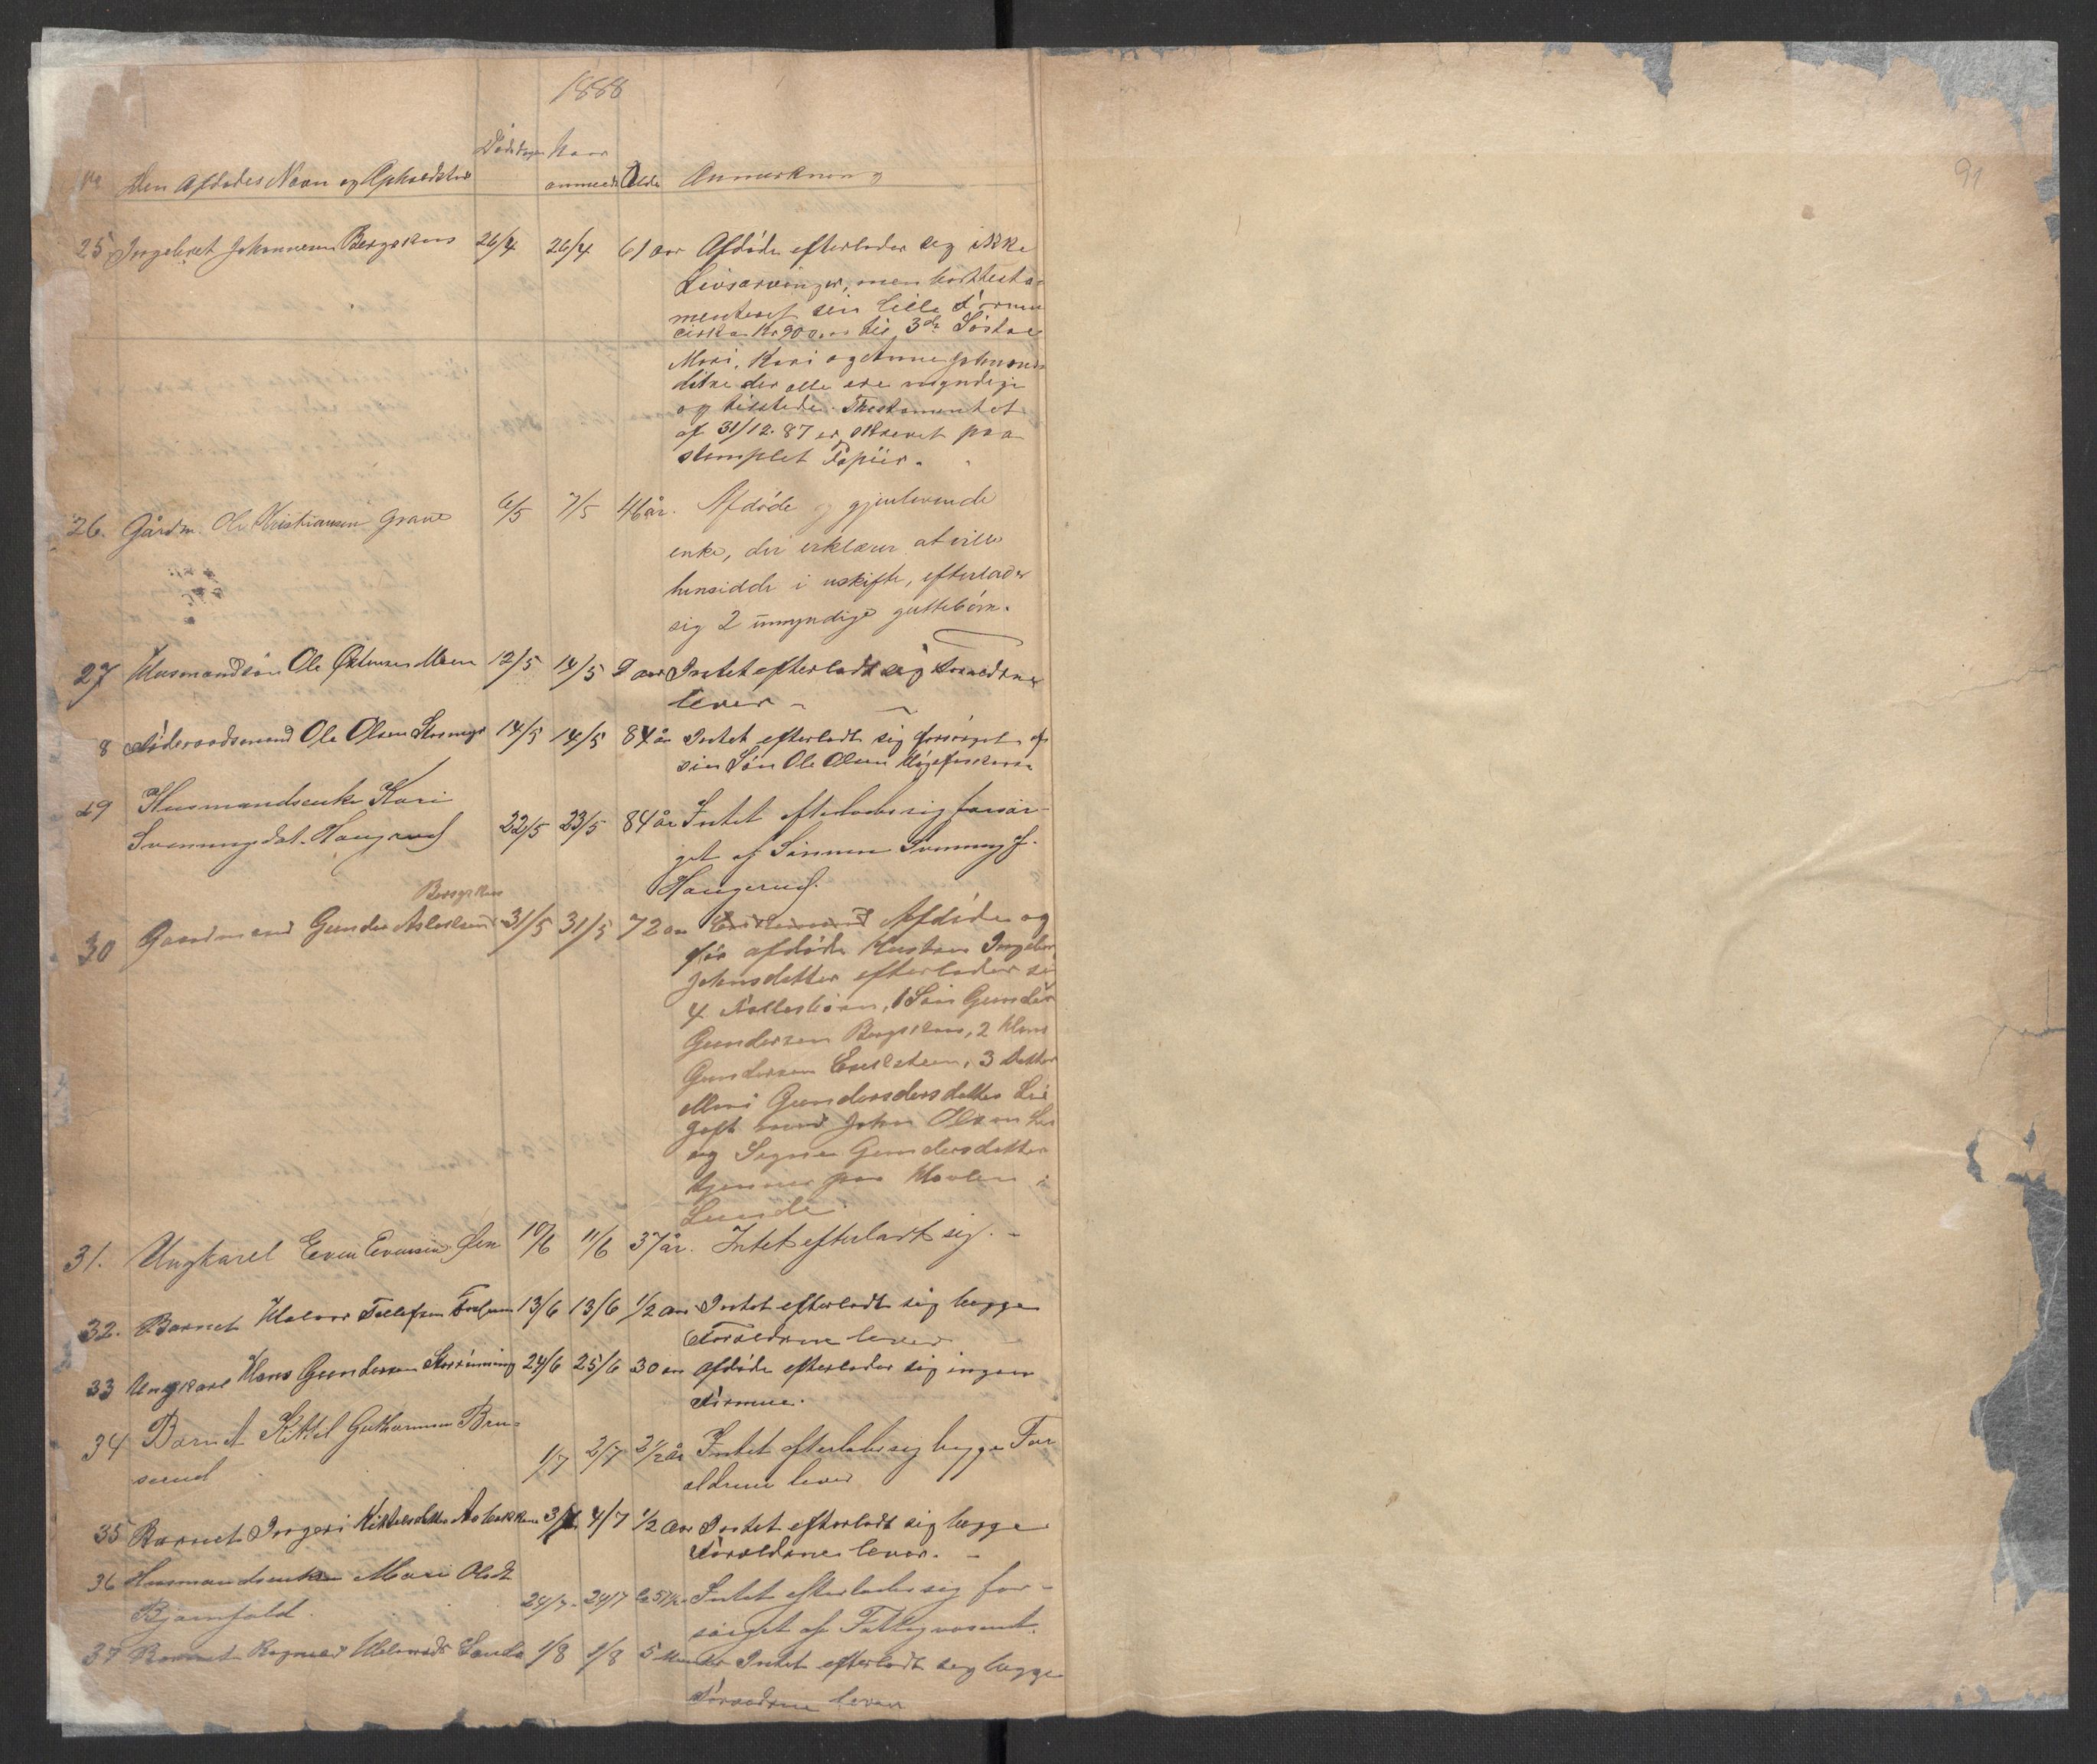 1888
Den Afdødes Navn og Opholdsted Dødsdagen Naar anmeldt Alder Anmærkning
91
25 Ingebret Johannesen Bergskaas 26/4 26/4 61 aar Afdøde efterlader sig ikke
Livsarvinger, men borttesta-
menteret sin lille Formue
cirka Kr 900,00 til 3de Søstre
Mari, Kari og Anne Johannes-
døtre der alle ere myndige
og tilstede. Thestamentet
af 31/12.87 er skrevet paa
stemplet Papiir.
26. Gårdm. Ole Kristiansen Grave 6/5 7/5 46 år. Afdøde og gjenlevende
enke, der erklærer at ville
hensidde i uskifte, efterlader
sig 2 umyndige guttebörn.
27 Husmandssøn Ole Moen 12/5 14/5 9 aar Intet efterladt sig Forældrene
lever
8 Ole Olsen 14/5 14/5 84 år Intet efterladt sig forsørget af
sin Søn Ole Olsen
29 Husmandsenke Kari
Svenningsdat. Haugerud 22/5 23/5 84 år Intet efterlader sig forsør-
get af Sønnen Svenning J.
Haugerud.
Bergskaas
30 Gaardmand Gunder Aslaksen 31/5 31/5 72 aar Afdøde og
før afdøde Kustru Ingebor
Johnsdatter efterlader sig
4 Møllesbörn, 1 Søn Gunder
Gundersen Bergskaas, 2 Hans
Gundersen 3 Datter
Mari Gundersdersdatter Lie
gift med John Olsen Lie
og Signe Gundersdatter
tjenner paa i
Lunde
31. Ungkarl Even Evensen 10/6 11/6 37 år. Intet efterladt sig. -
32. Barnet Halvor Tollefsen 13/6 13/6 1/2 aar Intet efterladt sig begge
Forældrene lever
33 Ungkarl Hans Gundersen 24/6 25/6 30 aar Afdøde efterlader sig ingen
Formue.
34 Barnet Kittel Guthormsen Bru-
serud 1/7 2/7 2 1/2 år Intet efterlader sig begge For
ældrene lever
35 Barnet Ingeri Kittelsdatter 3/7 4/7 1/2 aar Intet efterladt sig begge
Forældrene lever. -
36 Husmandsenke Mari Olsdt
Bjørnfald. 24/7 24/7 Intet efterlader sig for-
sørget af Fattigvæsenet.
37 Barnet 1/8 1/8 5 Maaneder Intet efterladt sig begge
Forældrene lever